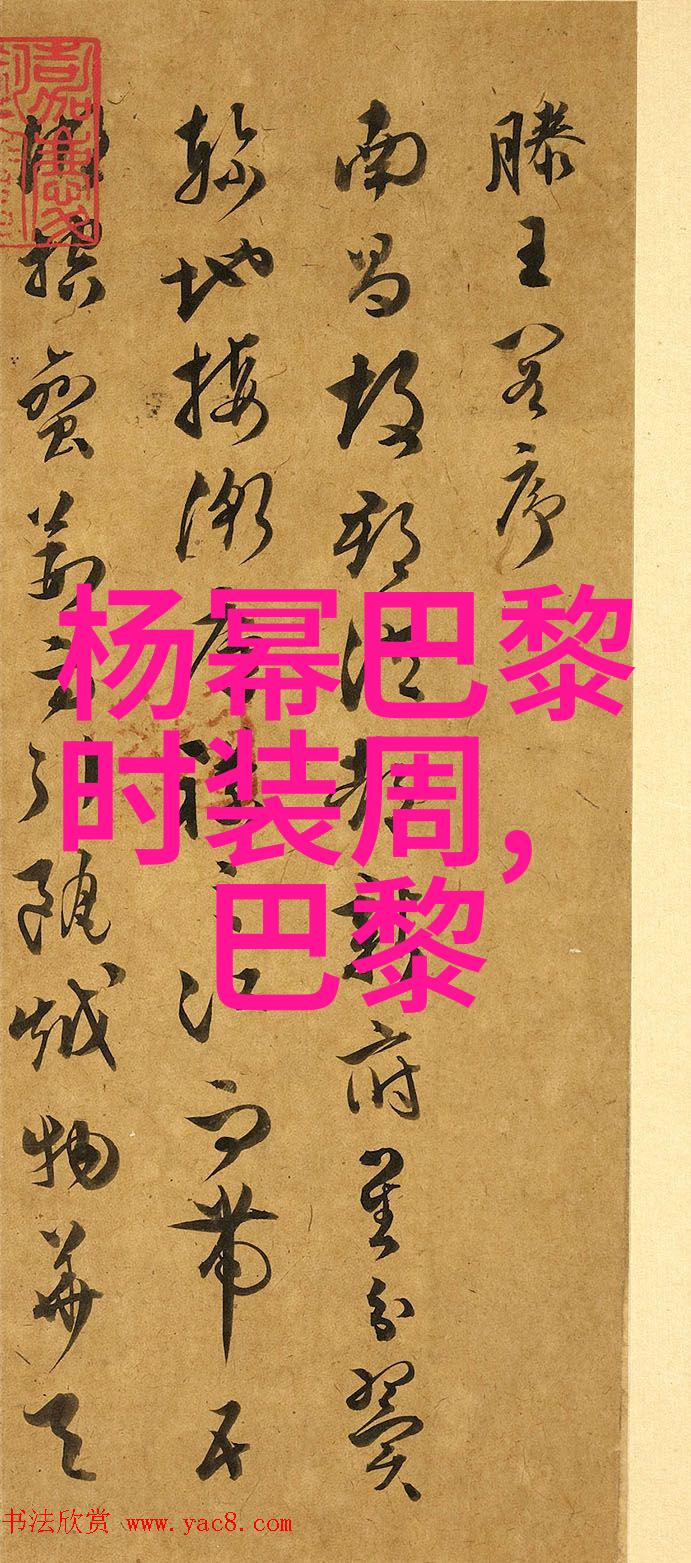 滕王阁序
南昌故郡洪都新府星分翼
軫地接衡廬襟三江而帶五
湖控蠻荆而引甌越物華天
杨幂巴黎
时装周,
巴黎
书法欣赏 www.yac8.com